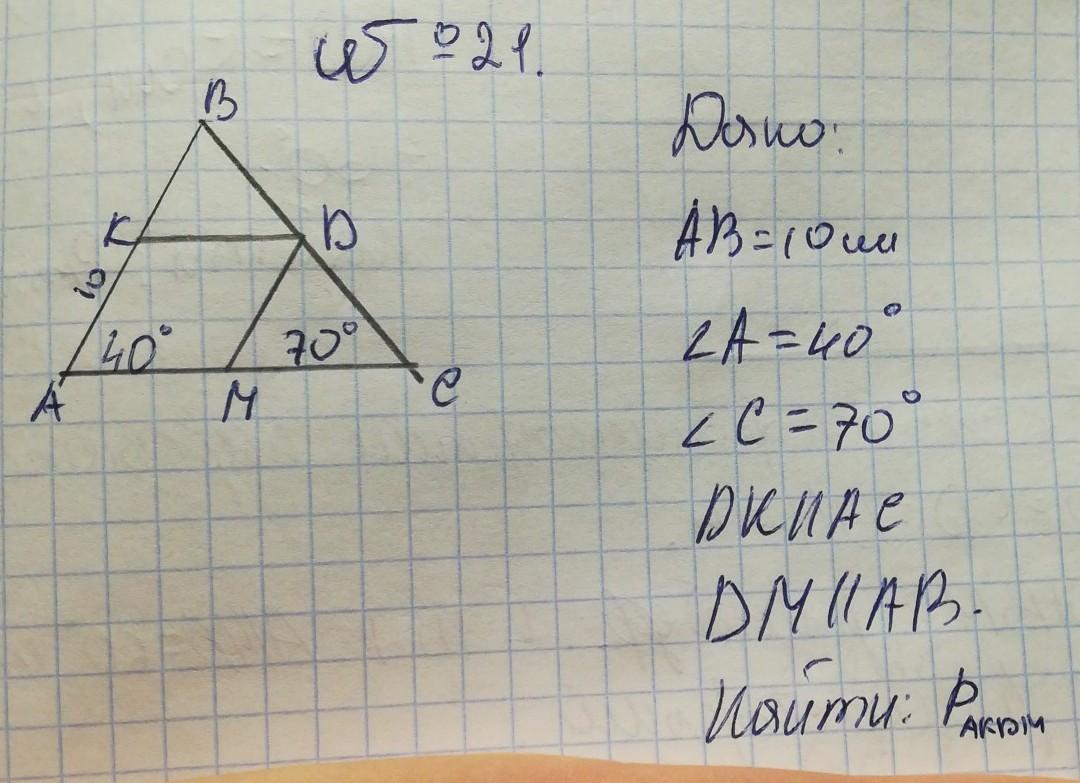 №21.
B
K D
10
40° 70°
A M C
Дано:
AB=10 см
∠A=40°
∠C=70°
DK||AC
DM||AB.
Найти: P AKDM